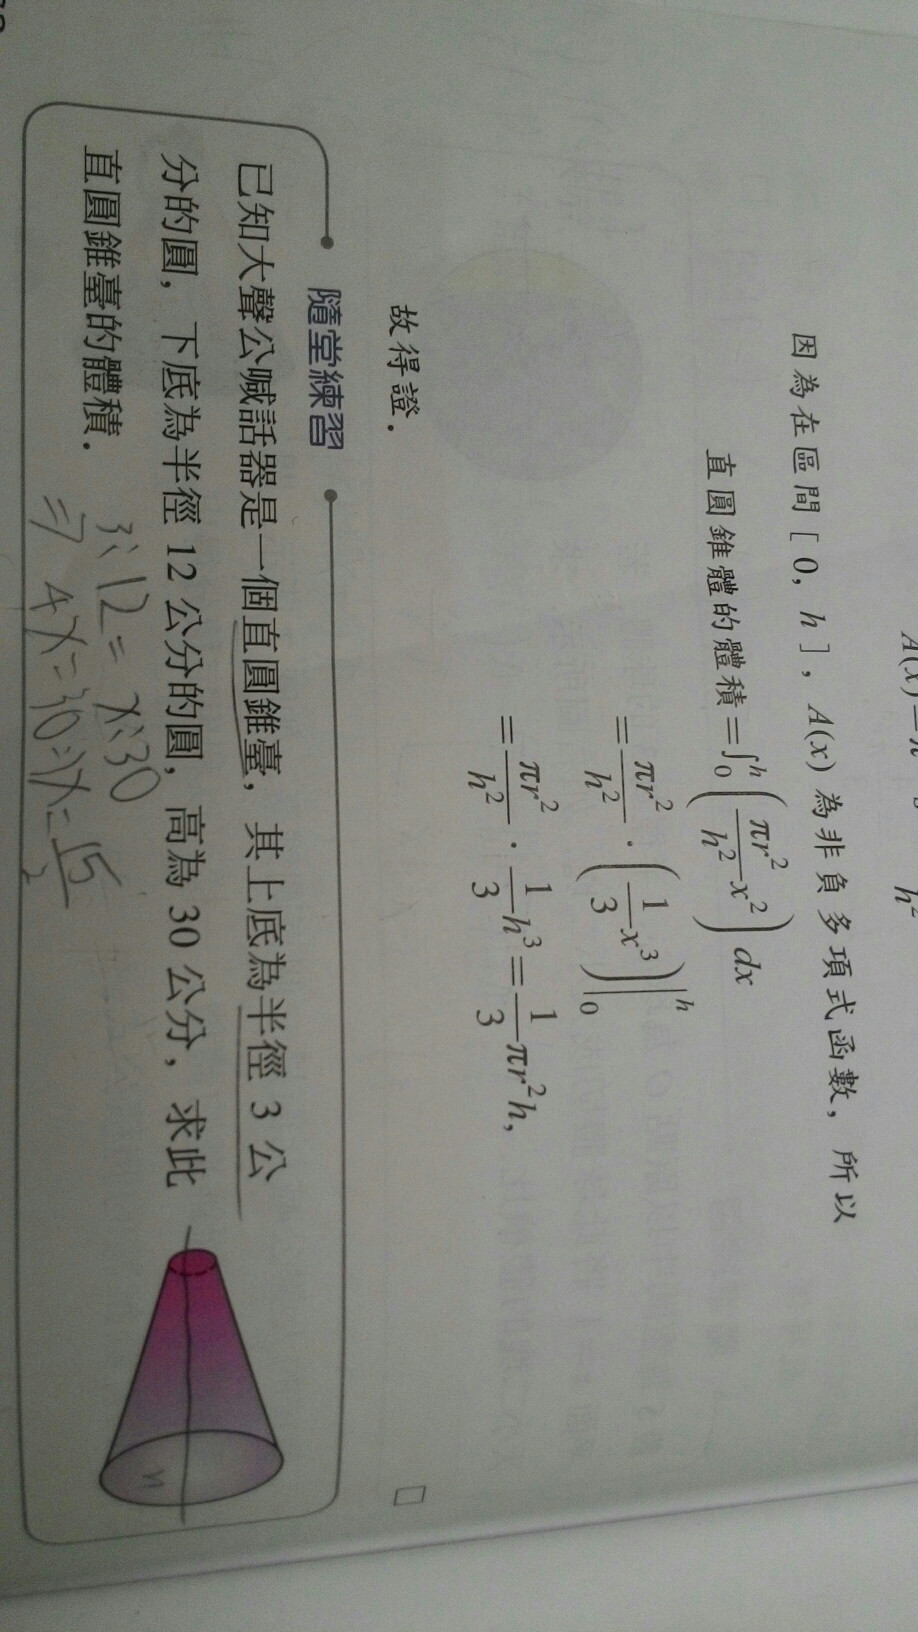 A(x)=π
h²
因為在區間[0, h], A(x) 為非負多項式函數, 所以
直圓錐體的體積=∫₀ʰ(πr²/h² x²)dx
=πr²/h²·(1/3 x³)|₀ʰ
=πr²/h²·1/3 h³=1/3 πr²h,
故得證.
□
隨堂練習
已知大聲公喊話器是一個直圓錐臺, 其上底為半徑 3 公
分的圓, 下底為半徑 12 公分的圓, 高為 30 公分, 求此
直圓錐臺的體積.
3:12=x:30
=>4x=30=>x=15/2